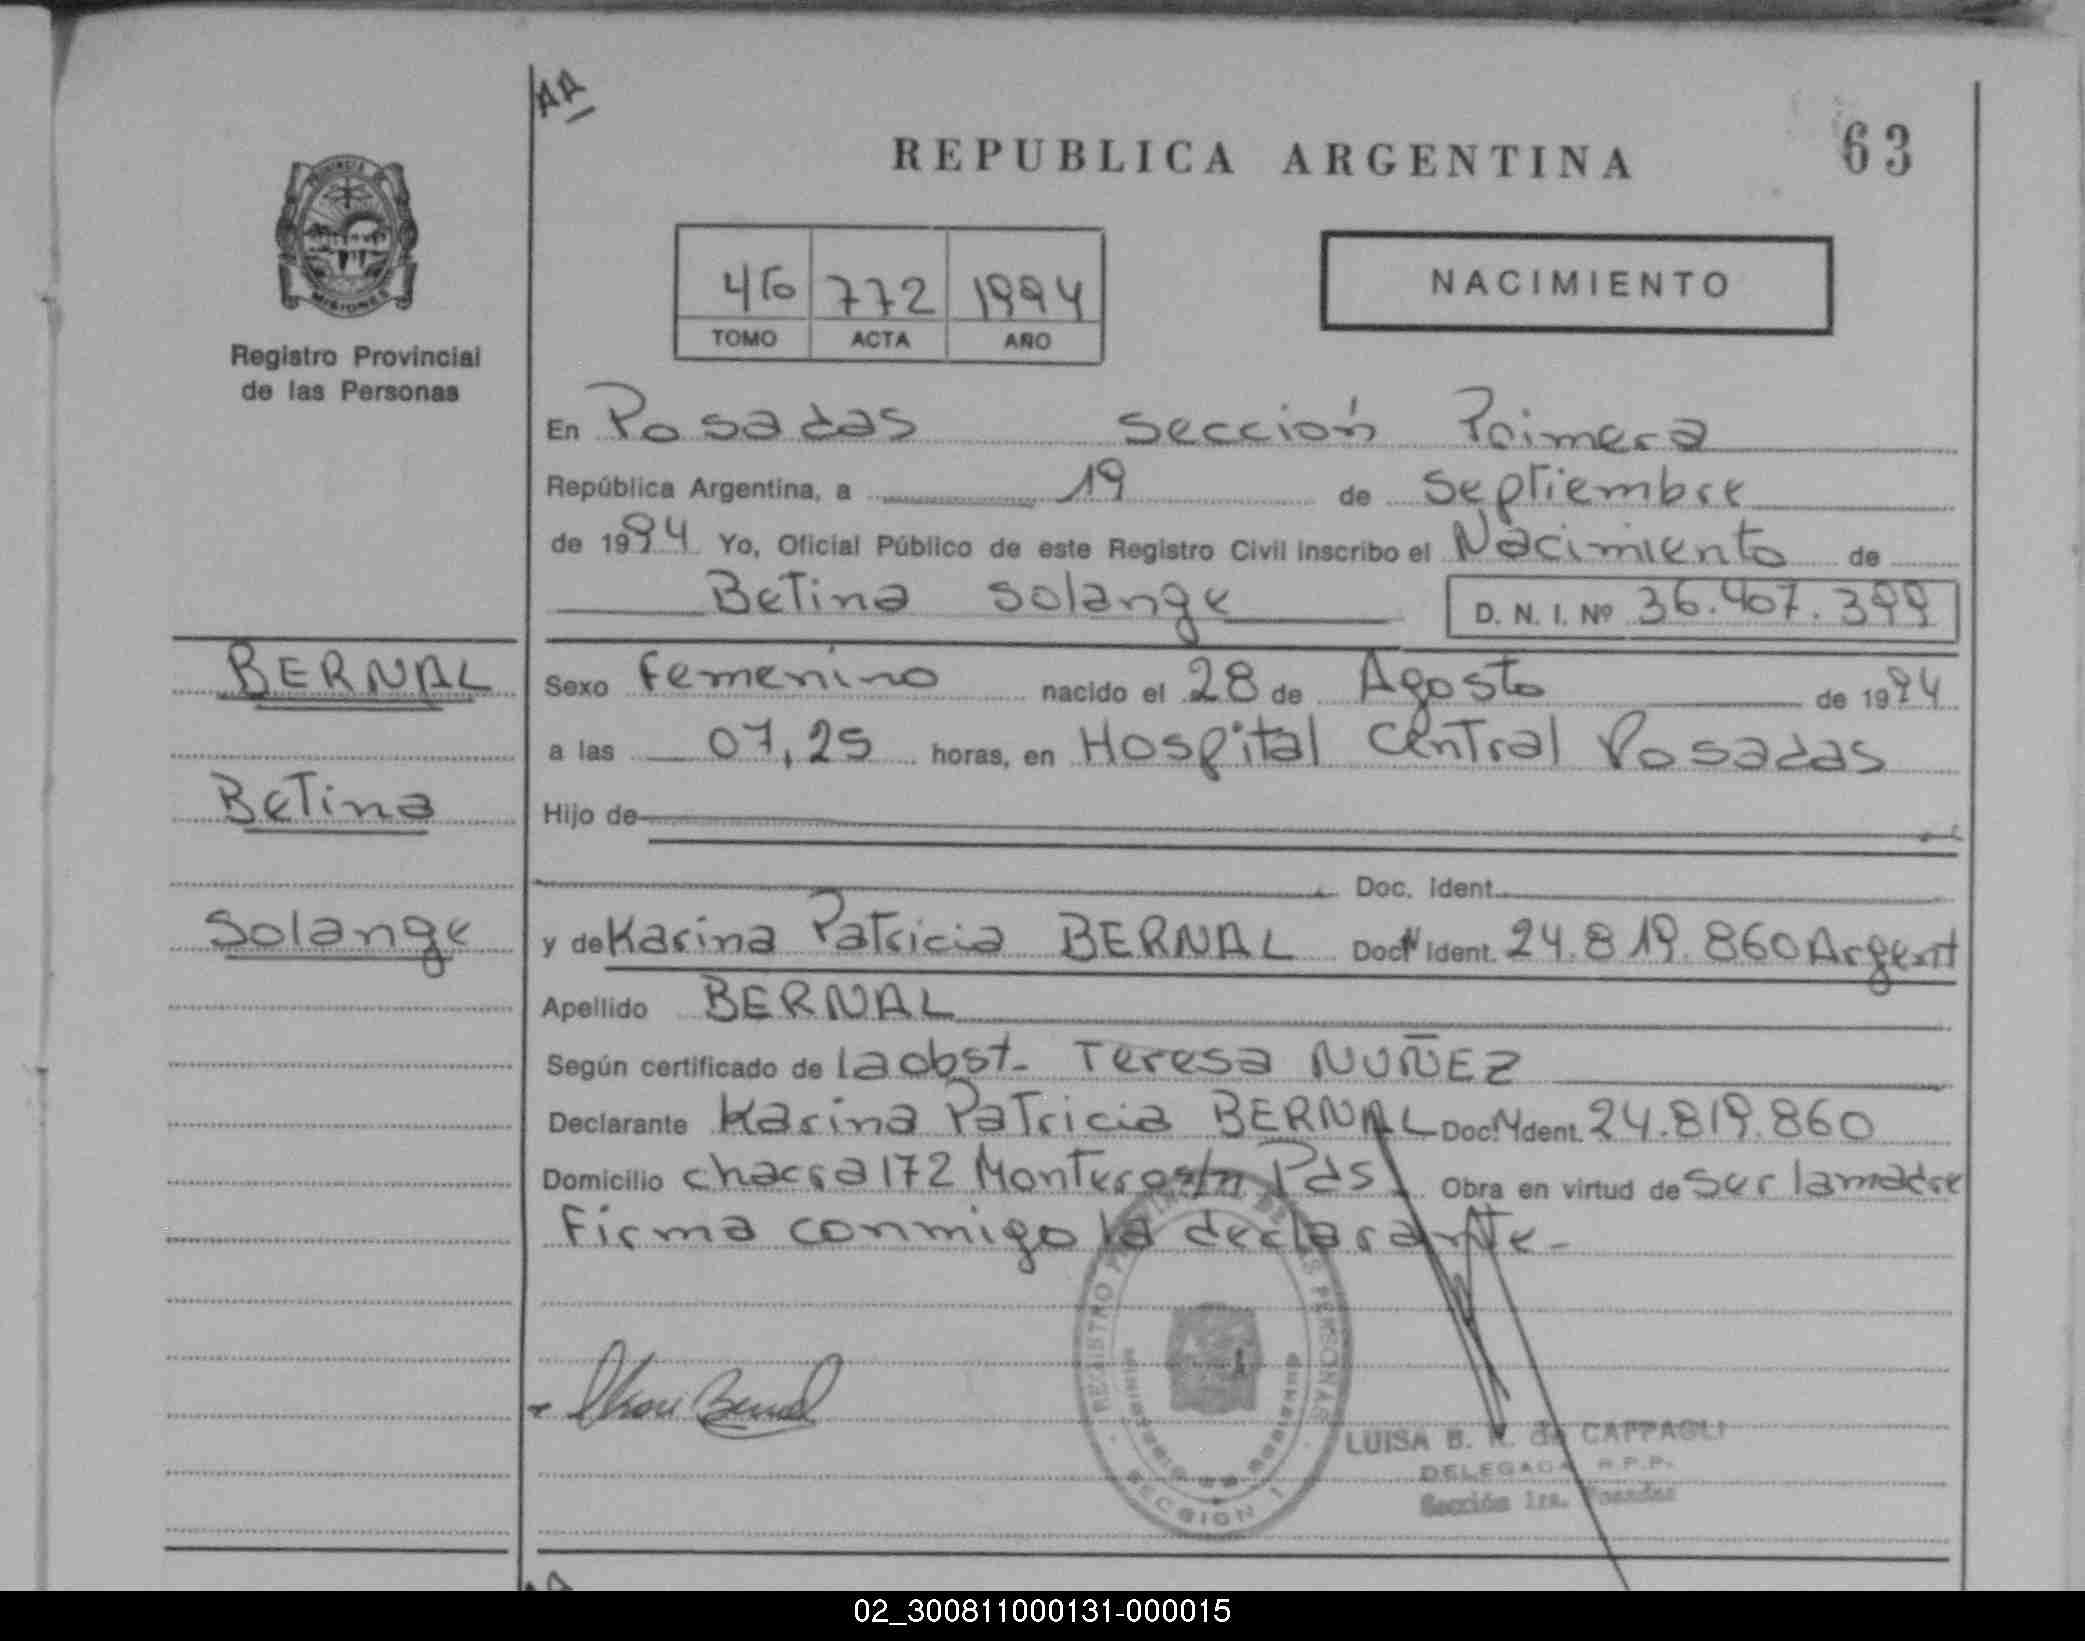 AA
REPUBLICA ARGENTINA
63
PROVINCIA
MISIONES
Registro Provincial
de las Personas
4to 772 1994
TOMO ACTA AÑO
NACIMIENTO
En Posadas Sección Primera
República Argentina, a 19 de Septiembre
de 1994 Yo, Oficial Público de este Registro Civil inscribo el Nacimiento de
Betina Solange D. N. I. Nº 36.407.399
BERNAL
Betina
Solange
Sexo Femenino nacido el 28 de Agosto de 1994
a las 07,25 horas, en Hospital Central Posadas
Hijo de
Doc. Ident.
y de Karina Patricia BERNAL Doc. N Ident. 24.819.860 Argent
Apellido BERNAL
Según certificado de la obst. Teresa NUÑEZ
Declarante Karina Patricia BERNAL Doc. N Ident. 24.819.860
Domicilio chacra 172 Monteros/n Pdas Obra en virtud de ser la madre
Firma conmigo la declarante.-
REGISTRO PROVINCIAL DE LAS PERSONAS
SECCION 1
LUISA B. R. de CAPPAGLI
DELEGADA R.P.P.
Sección 1ra. Posadas
02_300811000131-000015